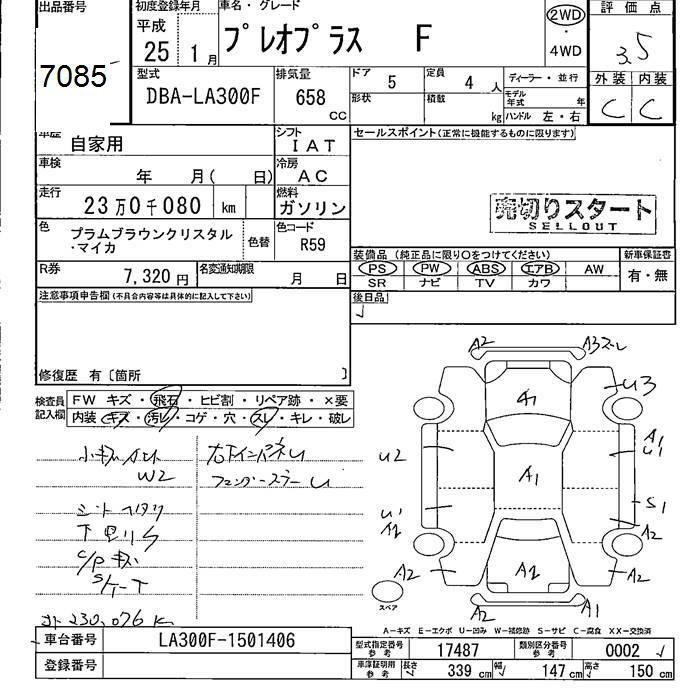 出品番号
7085
初度登録年月
平成
25 1月
車名・グレード
プレオプラス F
2WD
・
4WD
評価点
3.5
型式
DBA-LA300F
排気量
658
CC
ドア
5
定員
4人
ディーラー・並行
形状
積載
kg
モデル
年式
年
ハンドル 左・右
外装 内装
C C
車歴
自家用
シフト
IAT
車検
年 月( 日)
冷房
AC
走行
23万0千080 km
燃料
ガソリン
色
プラムブラウンクリスタル
・マイカ
色替
色コード
R59
R券
7,320円
名変通知期限
月 日
セールスポイント(正常に機能するものに限ります)
売切りスタート
SELLOUT
装備品 (純正品に限り○をつけてください)
新車保証書
PS PW ABS エアB AW
SR ナビ TV カワ
有・無
後日品
注意事項申告欄(不具合内容等は具体的に記入して下さい)
修復歴 有〔箇所 〕
検査員
記入欄
FW キズ・飛石・ヒビ割・リペア跡・×要
内装・キズ・汚レ・コゲ・穴・スレ・キレ・破レ
W2
シートヘタリ
C/P キズ
230,076 K
A2
A3スレ
A1
U3
U2
A1
U1
A1
U1
A2
S1
A2
A2
A2
A2
A2
A1
スペア
A-キズ E-エクボ U-凹み W-補修跡 S-サビ C-腐食 XX-交換済
車台番号
LA300F-1501406
登録番号
型式指定番号
参考
17487
類別区分番号
参考
0002
車庫証明用
参考
長さ 339 cm 幅 147 cm 高さ 150 cm